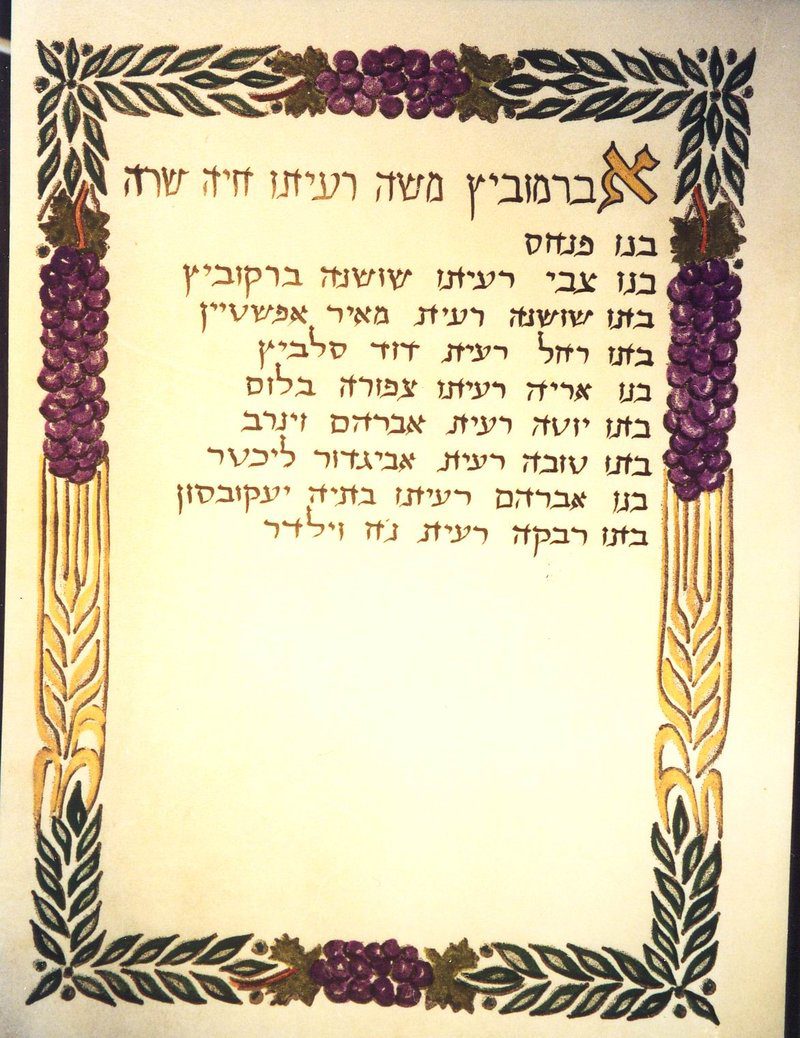 אברמוביץ משה רעיתו חיה שרה
בנו פנחס
בנו צבי רעיתו שושנה ברקוביץ
בתו שושנה רעית מאיר אפשטיין
בתו רחל רעית דוד סלביץ
בנו אריה רעיתו צפורה בלום
בתו יוטה רעית אברהם וינרב
בתו טובה רעית אביגדור ליכטר
בנו אברהם רעיתו בתיה יעקובסון
בתו רבקה רעית נח וילדר